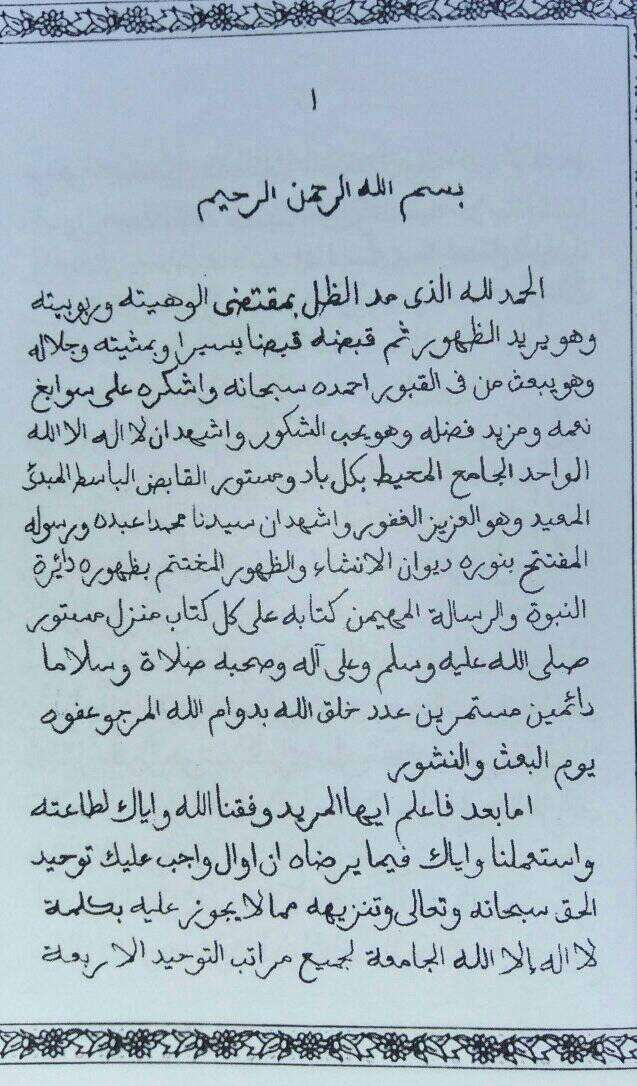 ١
بسم الله الرحمن الرحيم
الحمد لله الذى مد الظل بمقتضى الوهيته وربوبيته
وهو يريد الظهور ثم قبضه قبضا يسيرا وبمشيته وجلاله
وهو يبعث من فى القبور احمده سبحانه واشكره على سوابغ
نعمه ومزيد فضله وهو يحب الشكور واشهد ان لا اله الا الله
الواحد الجامع المحيط بكل باد ومستور القابض الباسط المبدئ
المعيد وهو العزيز الغفور واشهد ان سيدنا محمدا عبده ورسوله
المفتتح بنوره ديوان الانشاء والظهور المختتم بظهوره دائرة
النبوة والرسالة المهيمن كتابه على كل كتاب منزل مستور
صلى الله عليه وسلم وعلى آله وصحبه صلاة وسلاما
دائمين مستمرين عدد خلق الله بدوام الله المرجو عفوه
يوم البعث والنشور
اما بعد فاعلم ايها المريد وفقنا الله واياك لطاعته
واستعملنا واياك فيما يرضاه ان اوال واجب عليك توحيد
الحق سبحانه وتعالى وتنزيهه مما لا يجوز عليه بكلمة
لا اله إلا الله الجامعة لجميع مراتب التوحيد الاربعة